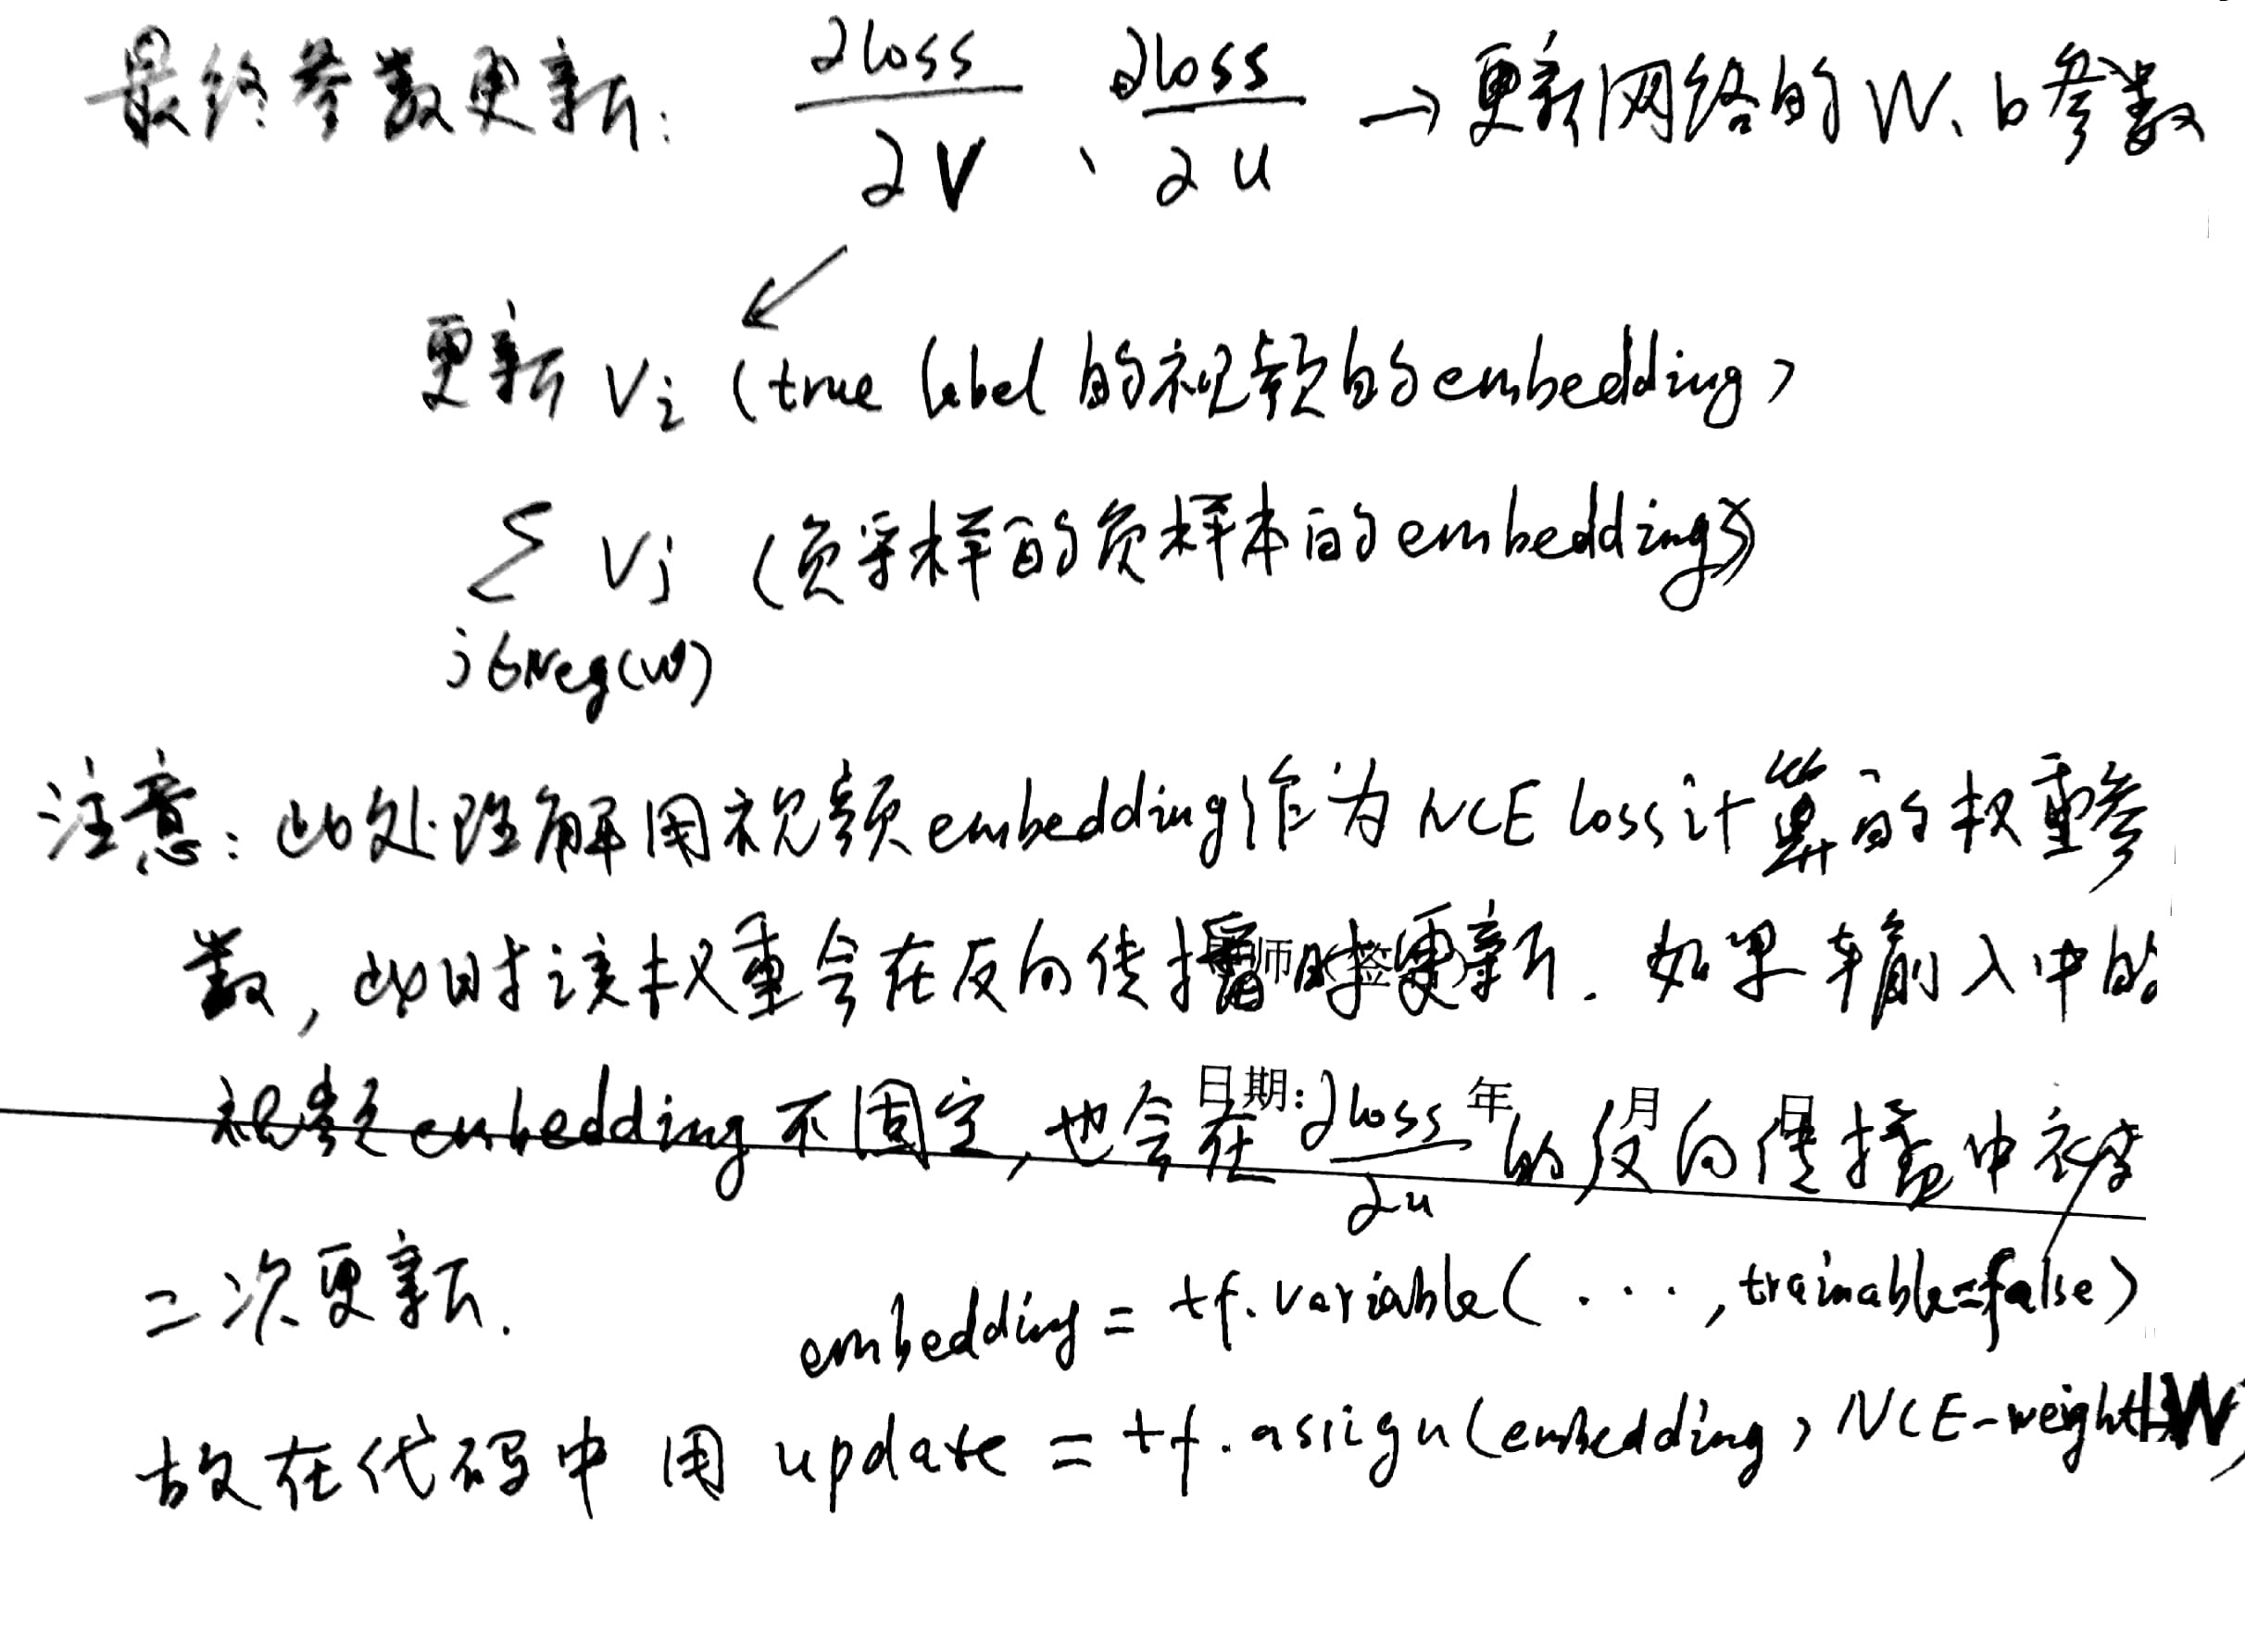 最终参数更新: ∂loss/∂V 、 ∂loss/∂u → 更新网络的W、b参数
更新 Vi (true label 的视频的embedding)
∑ Vj (负采样的负样本的embedding)
j∈Neg(w)
注意: 此处理解用视频embedding作为NCE loss计算的权重参
数, 此时该权重会在反向传播时更新. 如果输入中的
日期: 年 月 日
视频embedding不固定, 也会在 ∂loss/∂u 的反向传播中被
二次更新.
embedding = tf.variable( ... , trainable=false)
故在代码中用 update = tf.assign(embedding, NCE-weight